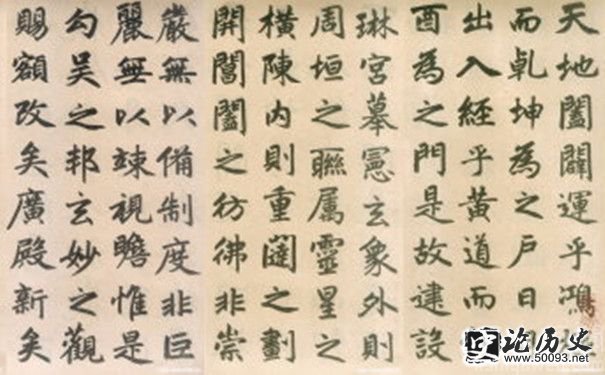 天地闔闢運乎鴻
而乹坤為之戶日
出入經乎黃道而
酉為之門是故建設
琳宮摹憲玄象外則
周垣之聯属靈星之
橫陳内則重闥之劃
開閶闔之彷彿非崇
嚴無以備制度非巨
麗無以竦視瞻惟是
勾吳之邦玄妙之觀
賜額改矣廣殿新矣
论历史
www.50093.net